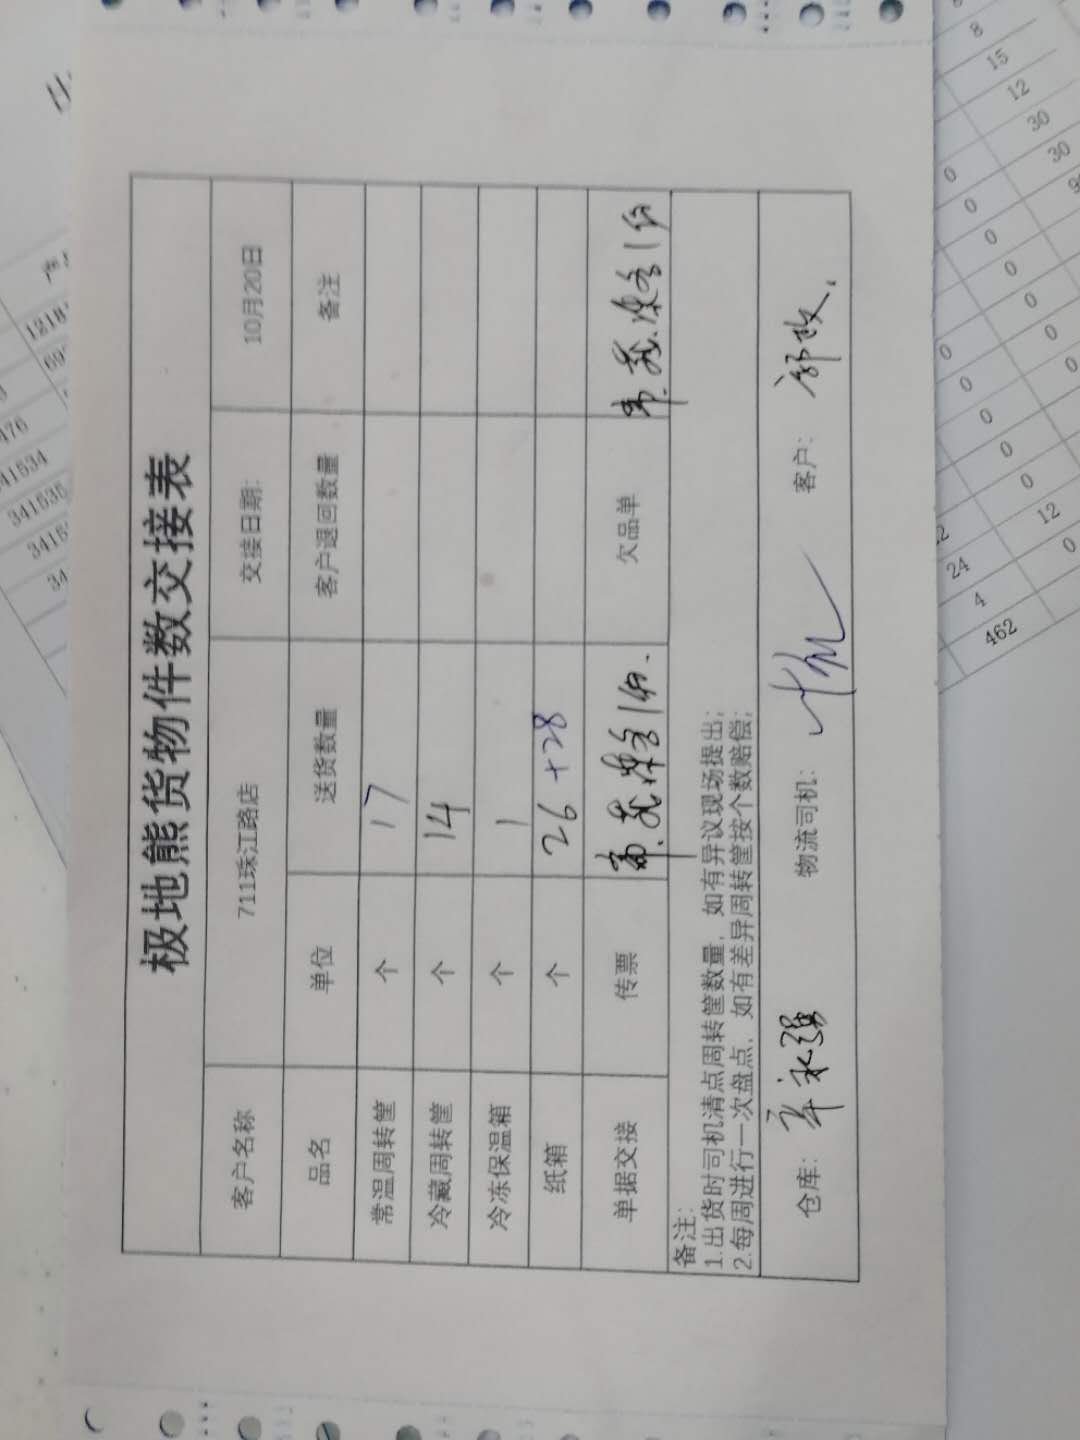 极地熊货物件数交接表
客户名称 711珠江路店 交接日期: 10月20日
品名 单位 送货数量 客户退回数量 备注
常温周转筐 个 17
冷藏周转筐 个 14
冷冻保温箱 个 1
纸箱 个 26+28
单据交接 传票 欠品单
备注:
1.出货时司机清点周转筐数量，如有异议现场提出;
2.每周进行一次盘点，如有差异周转筐按个数赔偿;
仓库: 物流司机: 客户:
8
15
12
30
30
0
0
0
0
0
0
0
0
0
0
0
0
0
24
12
4
0
462
476
341534
341535
3415
34
1218
69